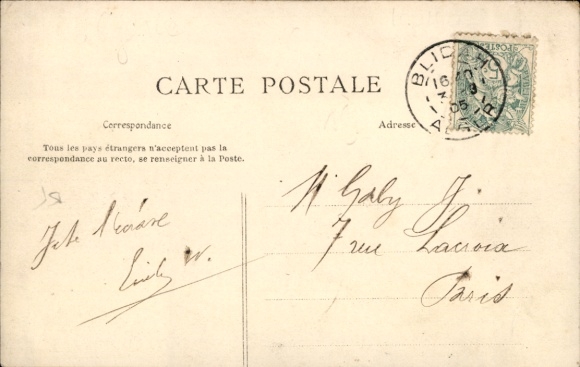 CARTE POSTALE
Correspondance
Adresse
Tous les pays étrangers n'acceptent pas la
correspondance au recto, se renseigner à la Poste.
BLIDAH
16
3
05
ALGER
POSTES
Gaby J.
7 rue Lacroix
Paris
Je te
Emile W.